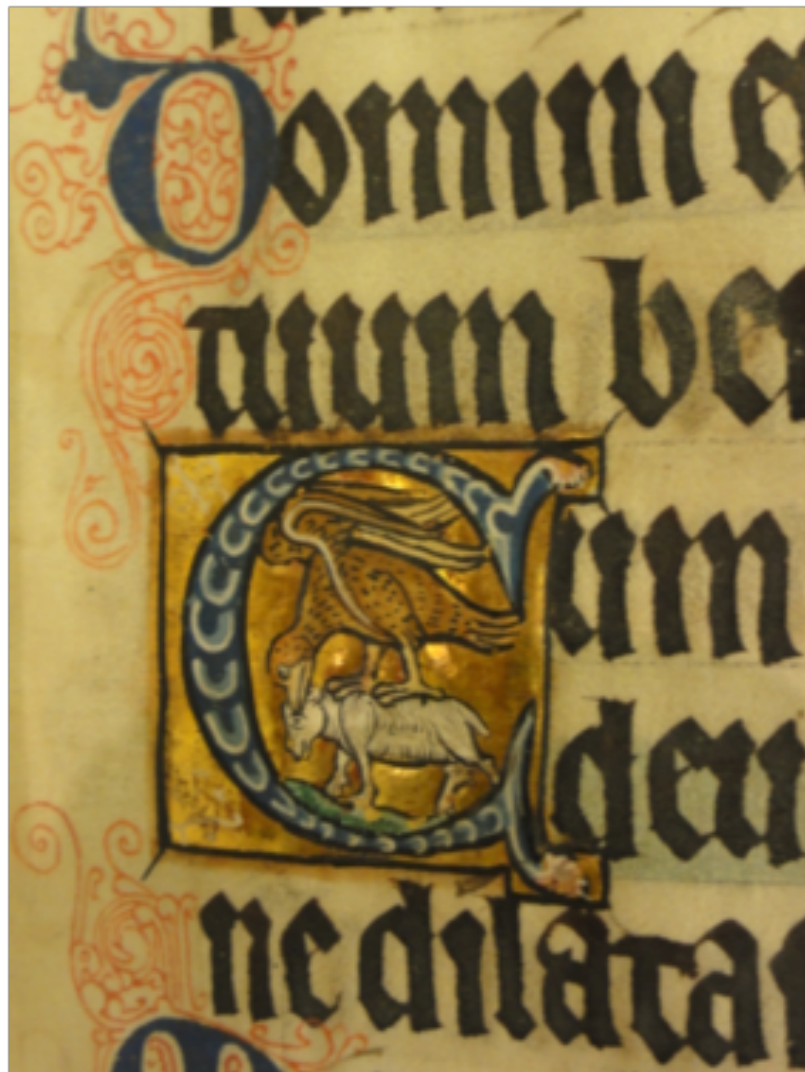 Domini e
tuum be
Cum
deu
ne dilata